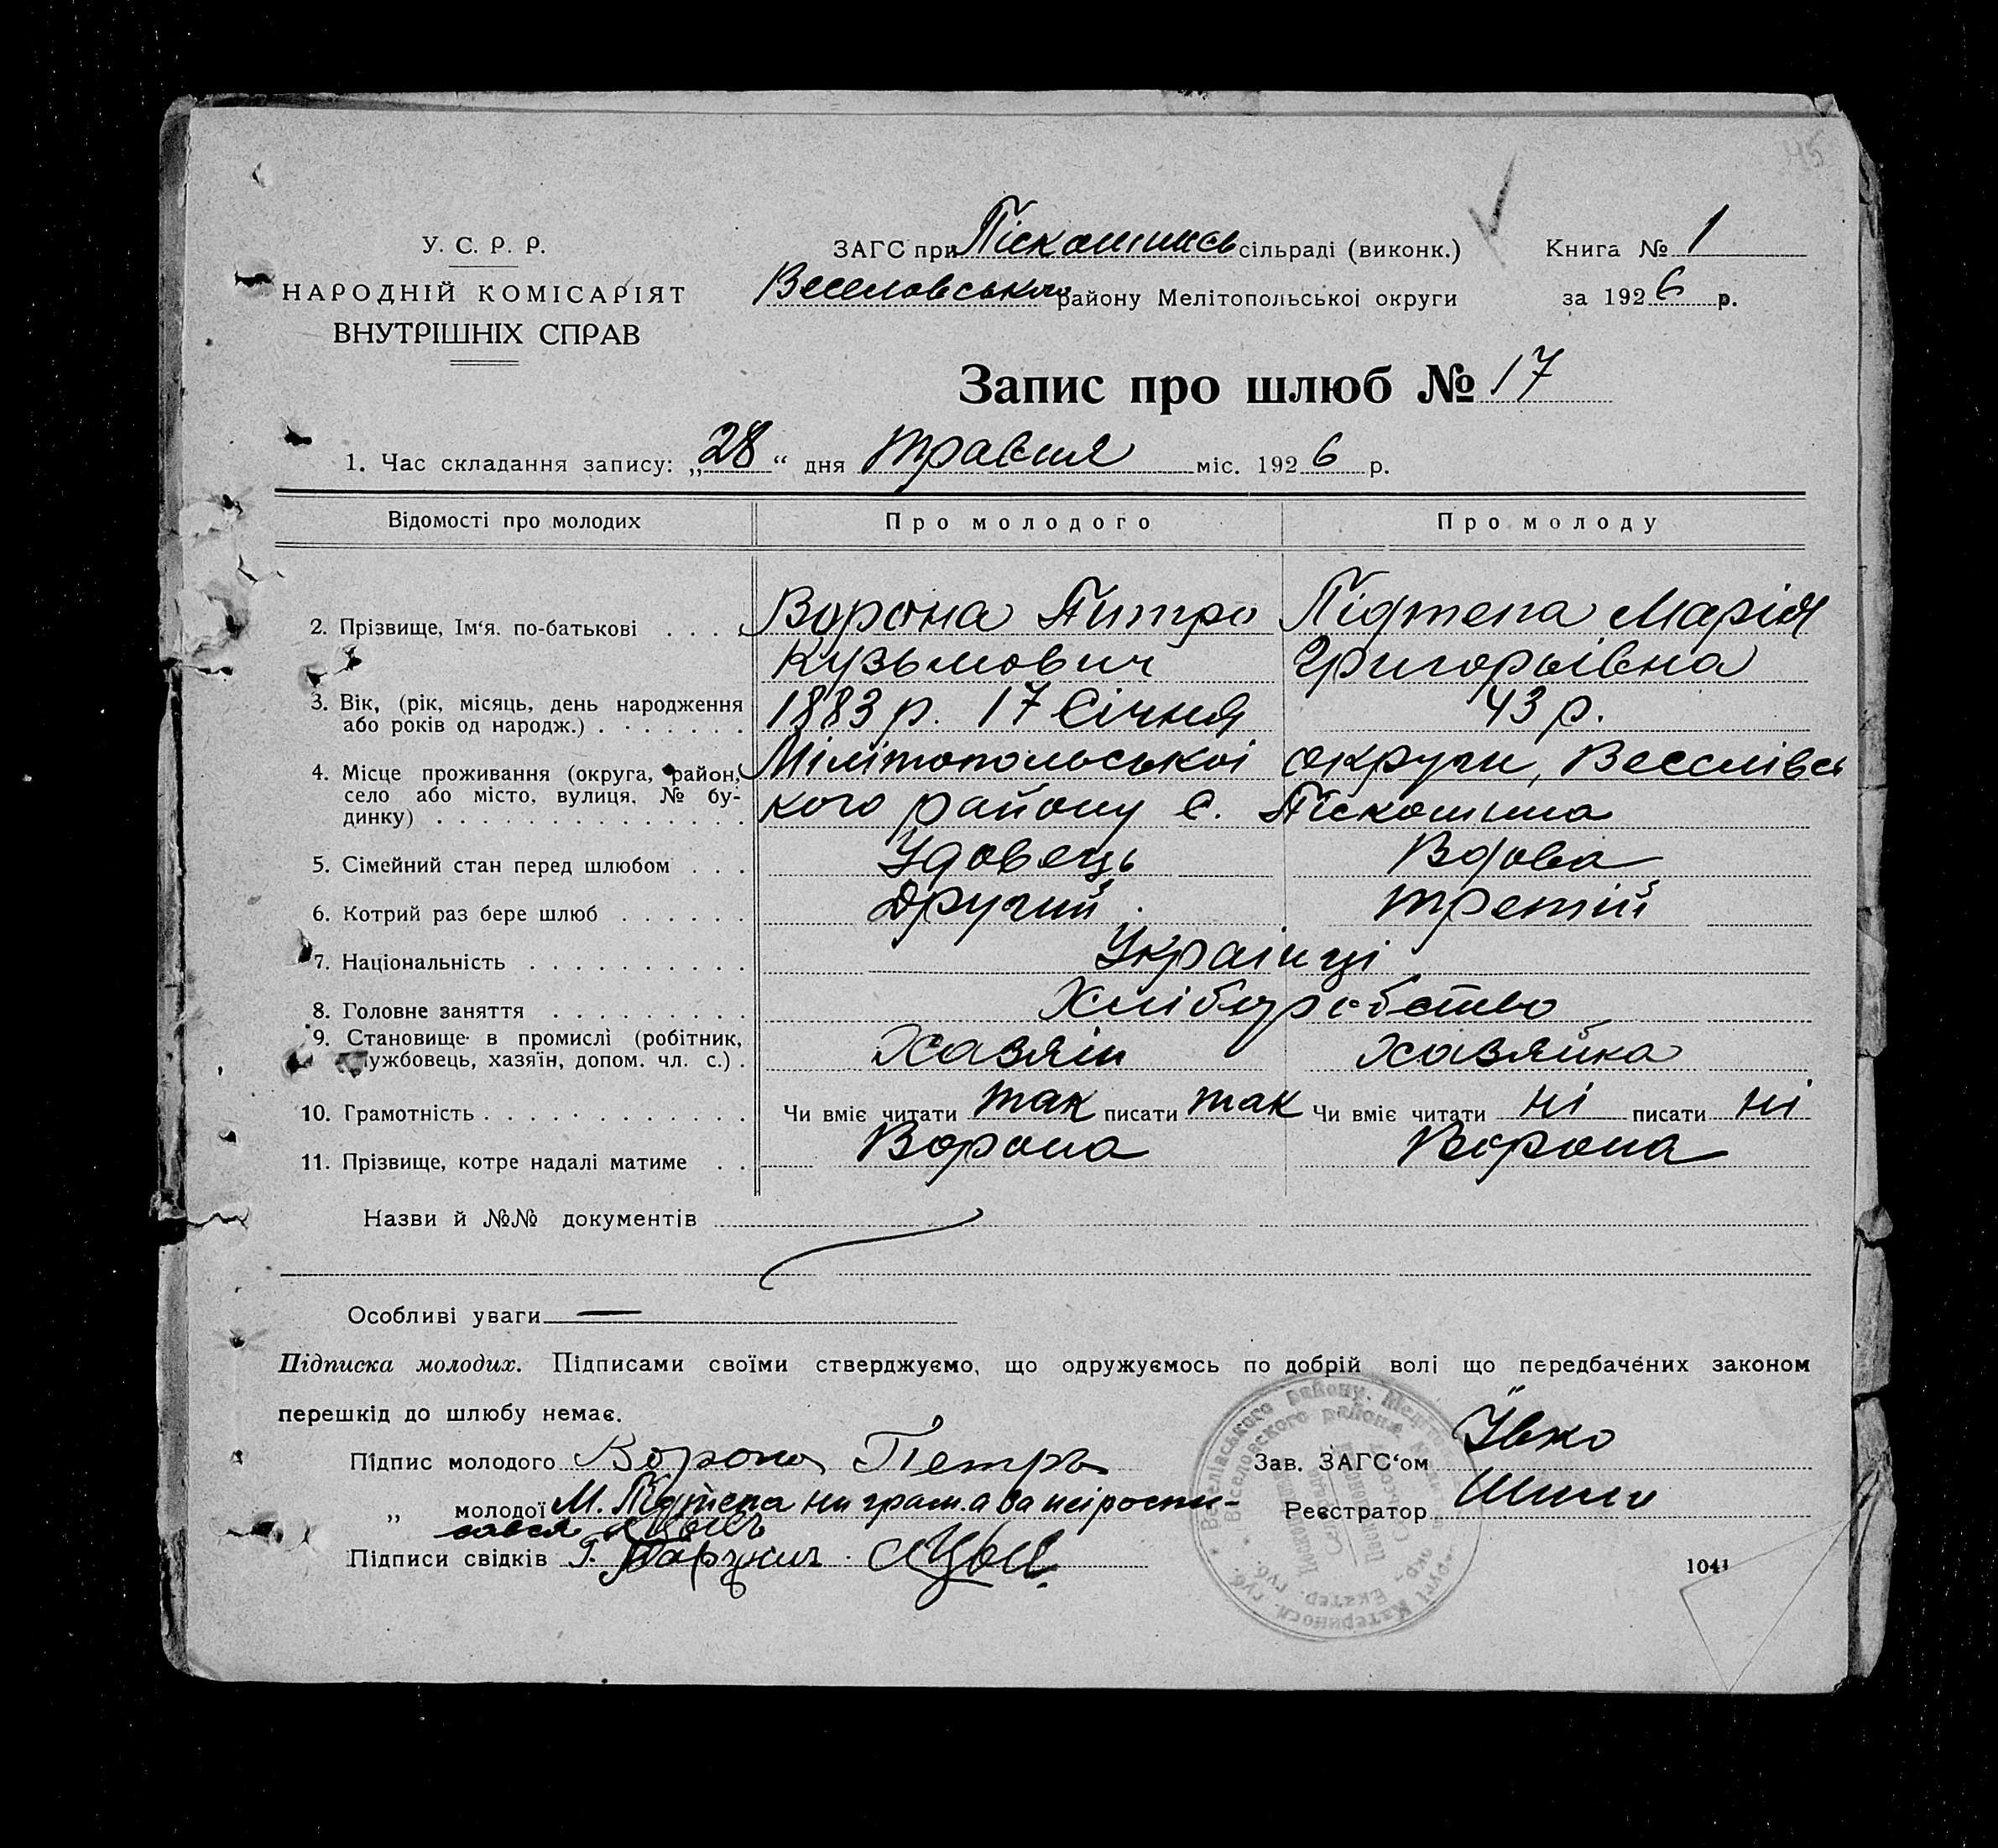 45
У. С. Р. Р.
НАРОДНІЙ КОМІСАРІЯТ
ВНУТРІШНІХ СПРАВ
ЗАГС при Піскошинсь сільраді (виконк.)
Веселовського району Мелітопольської округи
Книга № 1
за 1926 р.
Запис про шлюб № 17
1. Час складання запису: „28“ дня травня міс. 1926 р.
Відомості про молодих Про молодого Про молоду
2. Прізвище, Ім‘я. по-батькові . . . . Ворона Питро Підтепа Марія
Кузьмович Григорьівна
3. Вік, (рік, місяць, день народження
або років од народж.) . . . . . . . 1883 р. 17 Січня 43 р.
4. Місце проживання (округа, район, Мілітопольської округи, Веселівсь
село або місто, вулиця, № бу-
динку) . . . . . . . . . . . . . . кого району С. Піскошина
5. Сімейний стан перед шлюбом . . . Удовець Вдова
6. Котрий раз бере шлюб . . . . . . Другий третій
7. Національність . . . . . . . . . . Українці
8. Головне заняття . . . . . . . . . Хліборобство
9. Становище в промислі (робітник,
службовець, хазяїн, допом. чл. с.) . Хазяін хазяйка
10. Грамотність . . . . . . . . . . . . Чи вміє читати так писати так Чи вміє читати ні писати ні
11. Прізвище, котре надалі матиме . . Ворона Ворона
Назви й №№ документів
Особливі уваги —
Підписка молодих. Підписами своїми стверджуємо, що одружуємось по добрій волі що передбачених законом
перешкід до шлюбу немає.
Підпис молодого Ворона Петро
„ молодої М. Підтепа ни грам. а за неі роспи-
сався
Підписи свідків Г.
Зав. ЗАГС‘ом
Реєстратор
Веселівського району. Меліто
Веселовского района
округи Катериносл. губ.
Екатер. губ.
1041